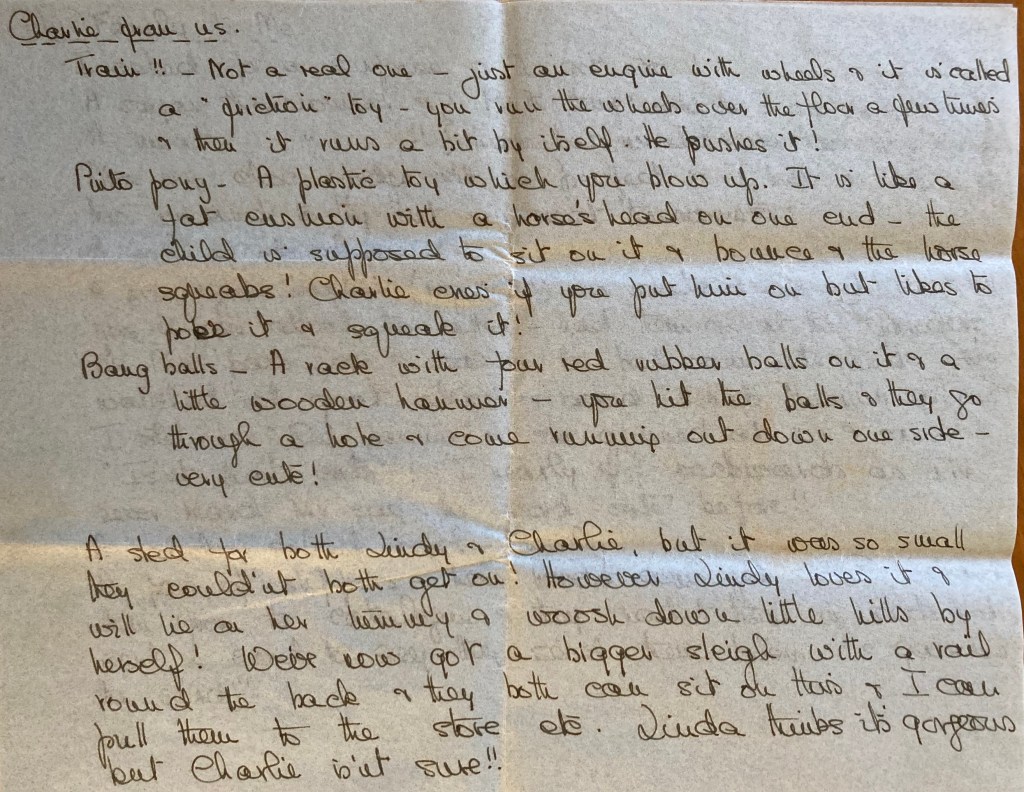 Charlie from us.
Train!! - Not a real one - just an engine with wheels & it is called
a "friction" toy - you run the wheels over the floor a few times
& then it runs a bit by itself. He pushes it!
Pinto pony - A plastic toy which you blow up. It is like a
fat cushion with a horse's head on one end - the
child is supposed to sit on it & bounce & the horse
squeaks! Charlie cries if you put him on but likes to
poke it & squeak it!
Bang balls - A rack with four red rubber balls on it & a
little wooden hammer - you hit the balls & they go
through a hole & come running out down one side -
very cute!
A sled for both Lindy & Charlie, but it was so small
they could'nt both get on! However Lindy loves it &
will lie on her tummy & woosh down little hills by
herself! We've now got a bigger sleigh with a rail
round the back & they both can sit on this & I can
pull them to the store etc. Linda thinks it's gorgeous
but Charlie is'nt sure!!